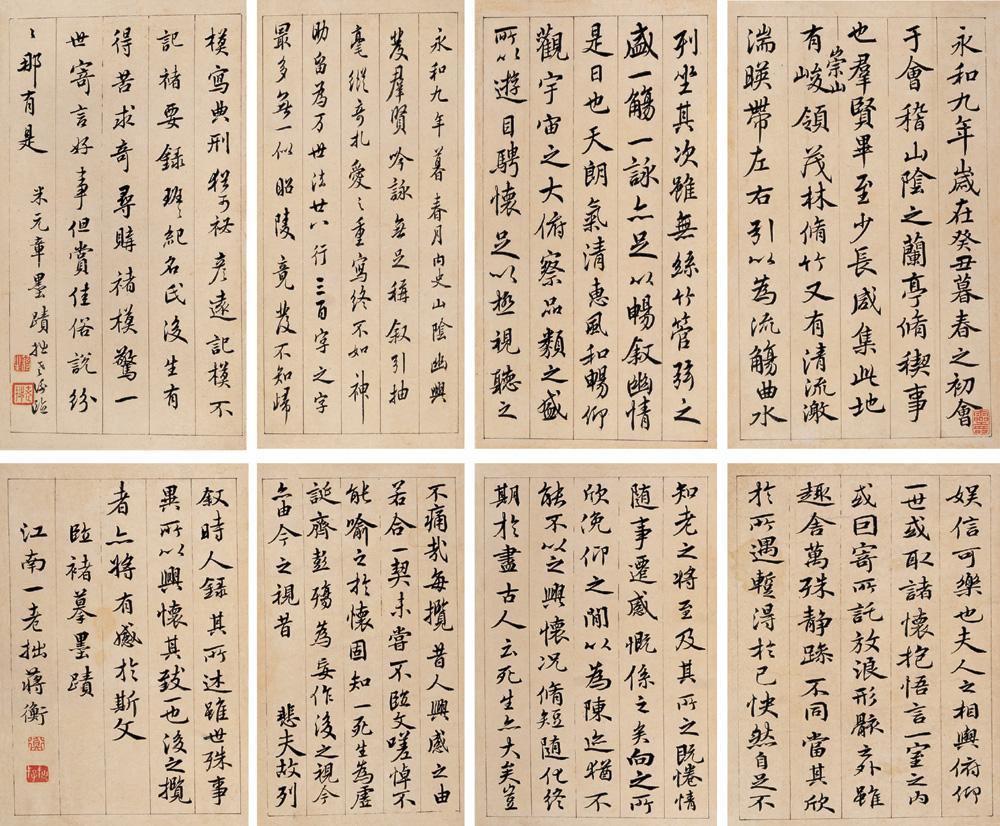 永和九年歲在癸丑暮春之初會
于會稽山陰之蘭亭脩稧事
也羣賢畢至少長咸集此地
有崇山峻領茂林脩竹又有清流激
湍暎帶左右引以為流觴曲水
列坐其次雖無絲竹管弦之
盛一觴一詠亦足以暢敘幽情
是日也天朗氣清惠風和暢仰
觀宇宙之大俯察品類之盛
所以遊目騁懷足以極視聽之
娛信可樂也夫人之相與俯仰
一世或取諸懷抱悟言一室之內
或因寄所託放浪形骸之外雖
趣舍萬殊静躁不同當其欣
於所遇暫得於己怏然自足不
知老之將至及其所之既惓情
隨事遷感慨係之矣向之所
欣俛仰之間以為陳迹猶不
能不以之興懷況脩短隨化終
期於盡古人云死生亦大矣豈
不痛哉每攬昔人興感之由
若合一契未嘗不臨文嗟悼不
能喻之於懷固知一死生為虛
誕齊彭殤為妄作後之視今
亦由今之視昔 悲夫故列
敘時人錄其所述雖世殊事
異所以興懷其致一也後之攬
者亦將有感於斯文
臨褚摹墨蹟
江南一老拙蔣衡
永和九年暮春月內史山陰幽興
發羣賢吟詠無足稱敘引抽
毫縱奇札愛之重寫終不如神
助留為万世法廿八行三百字之字
最多無一似昭陵竟發不知歸
模寫典刑猶可祕彥遠記模不
記褚要錄班班紀名氏後生有
得苦求奇尋購褚模驚一
世寄言好事但賞佳俗說紛
紛那有是 米元章墨蹟拙老衡臨